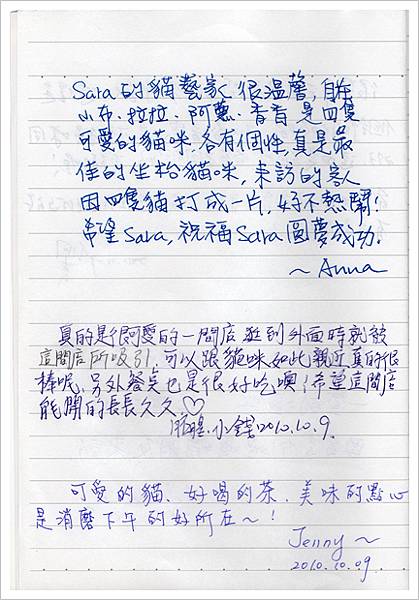 Sara的貓藝家很溫馨,自在
小布、拉拉、阿蔥、香香是四隻
可愛的貓咪,各有個性,真是最
佳的坐枱貓咪,來訪的客人
因四隻貓打成一片,好不熱鬧!
希望Sara,祝福Sara圓夢成功.
～Anna
真的是很可愛的一間店 逛到外面時就被
這間店所吸引,可以跟貓咪如此親近真的很
棒呢,另外餐點也是很好吃噢!希望這間店
能開的長長久久.♡
小錢2010.10.9.
可愛的貓、好喝的茶、美味的點心
是消磨下午的好所在～!
Jenny～
2010.10.09